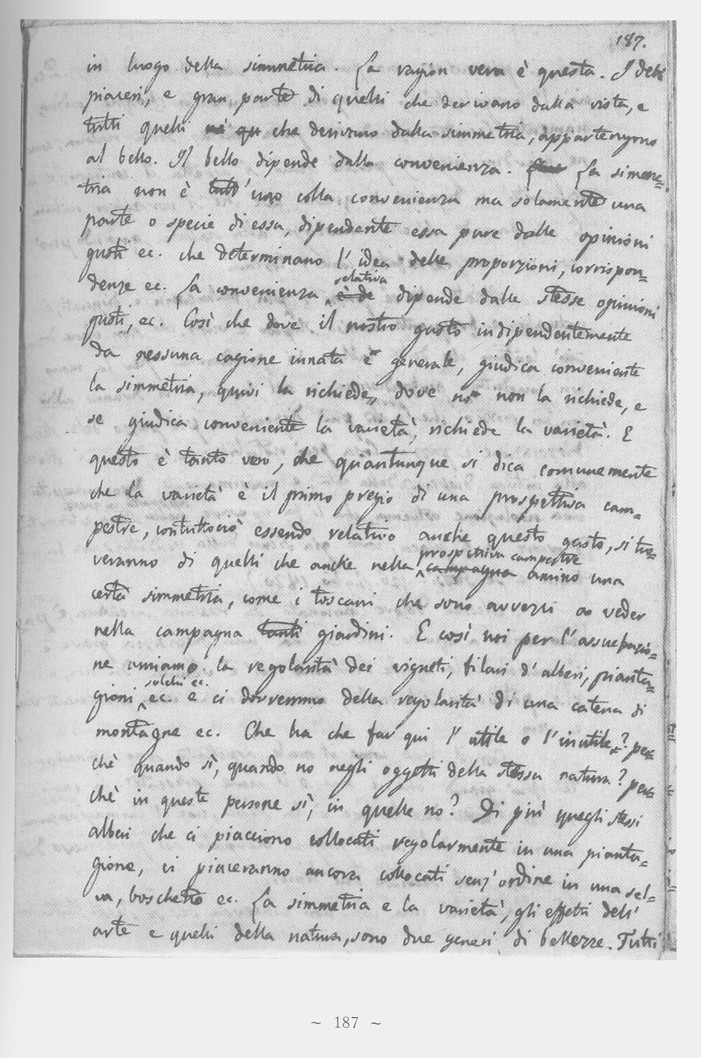 187.
in luogo della simmetria. La ragion vera è questa. I detti
piaceri, e gran parte di quelli che derivano dalla vista, e
tutti quelli che derivano dalla simmetria, appartengono
al bello. Il bello dipende dalla convenienza. La simme=
tria non è tutt'uno colla convenienza ma solamente una
parte o specie di essa, dipendente essa pure dalle opinioni
gusti ec. che determinano l'idea delle proporzioni, corrispon=
denze ec. La convenienza relativa dipende dalle stesse opinioni
gusti, ec. Così che dove il nostro gusto indipendentemente
da nessuna cagione innata e generale, giudica conveniente
la simmetria, quivi la richiede, dove no non la richiede, e
se giudica conveniente la varietà, richiede la varietà. E
questo è tanto vero, che quantunque si dica comunemente
che la varietà è il primo pregio di una prospettiva cam=
pestre, contuttociò essendo relativo anche questo gusto, si tro=
veranno di quelli che anche nella prospettiva campestre amino una
certa simmetria, come i toscani che sono avvezzi a veder
nella campagna tanti giardini. E così noi per l'assuefazio=
ne amiamo la regolarità dei vigneti, filari d'alberi, pianta=
gioni solchi ec. ec. e ci dorremmo della regolarità di una catena di
montagne ec. Che ha che far qui l'utile o l'inutile? per=
chè quando sì, quando no negli oggetti della stessa natura? per=
chè in queste persone sì, in quelle no? Di più quegli stessi
alberi che ci piacciono collocati regolarmente in una pianta=
gione, ci piaceranno ancora collocati senz'ordine in una sel=
va, boschetto ec. La simmetria e la varietà, gli effetti dell'
arte e quelli della natura, sono due generi di bellezze. Tutti
~ 187 ~